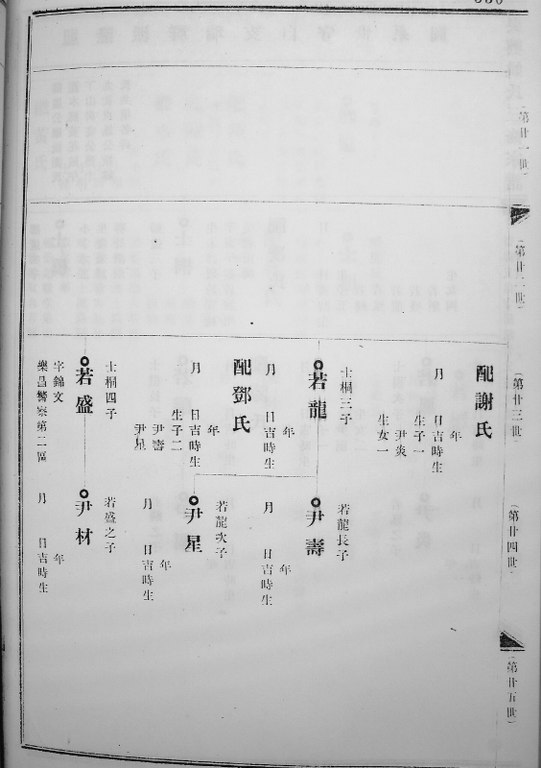 第廿一世
第廿二世
第廿三世
第廿四世
第廿五世
配謝氏
年
月 日吉時生
生子一
尹奭
生女一
士桐三子
若龍
年
月 日吉時生
配鄧氏
年
月 日吉時生
生子二
尹壽
尹星
士桐四子
若盛
字錦文
樂昌警察第二區
若龍長子
尹壽
年
月 日吉時生
若龍次子
尹星
年
月 日吉時生
若盛之子
尹材
年
月 日吉時生